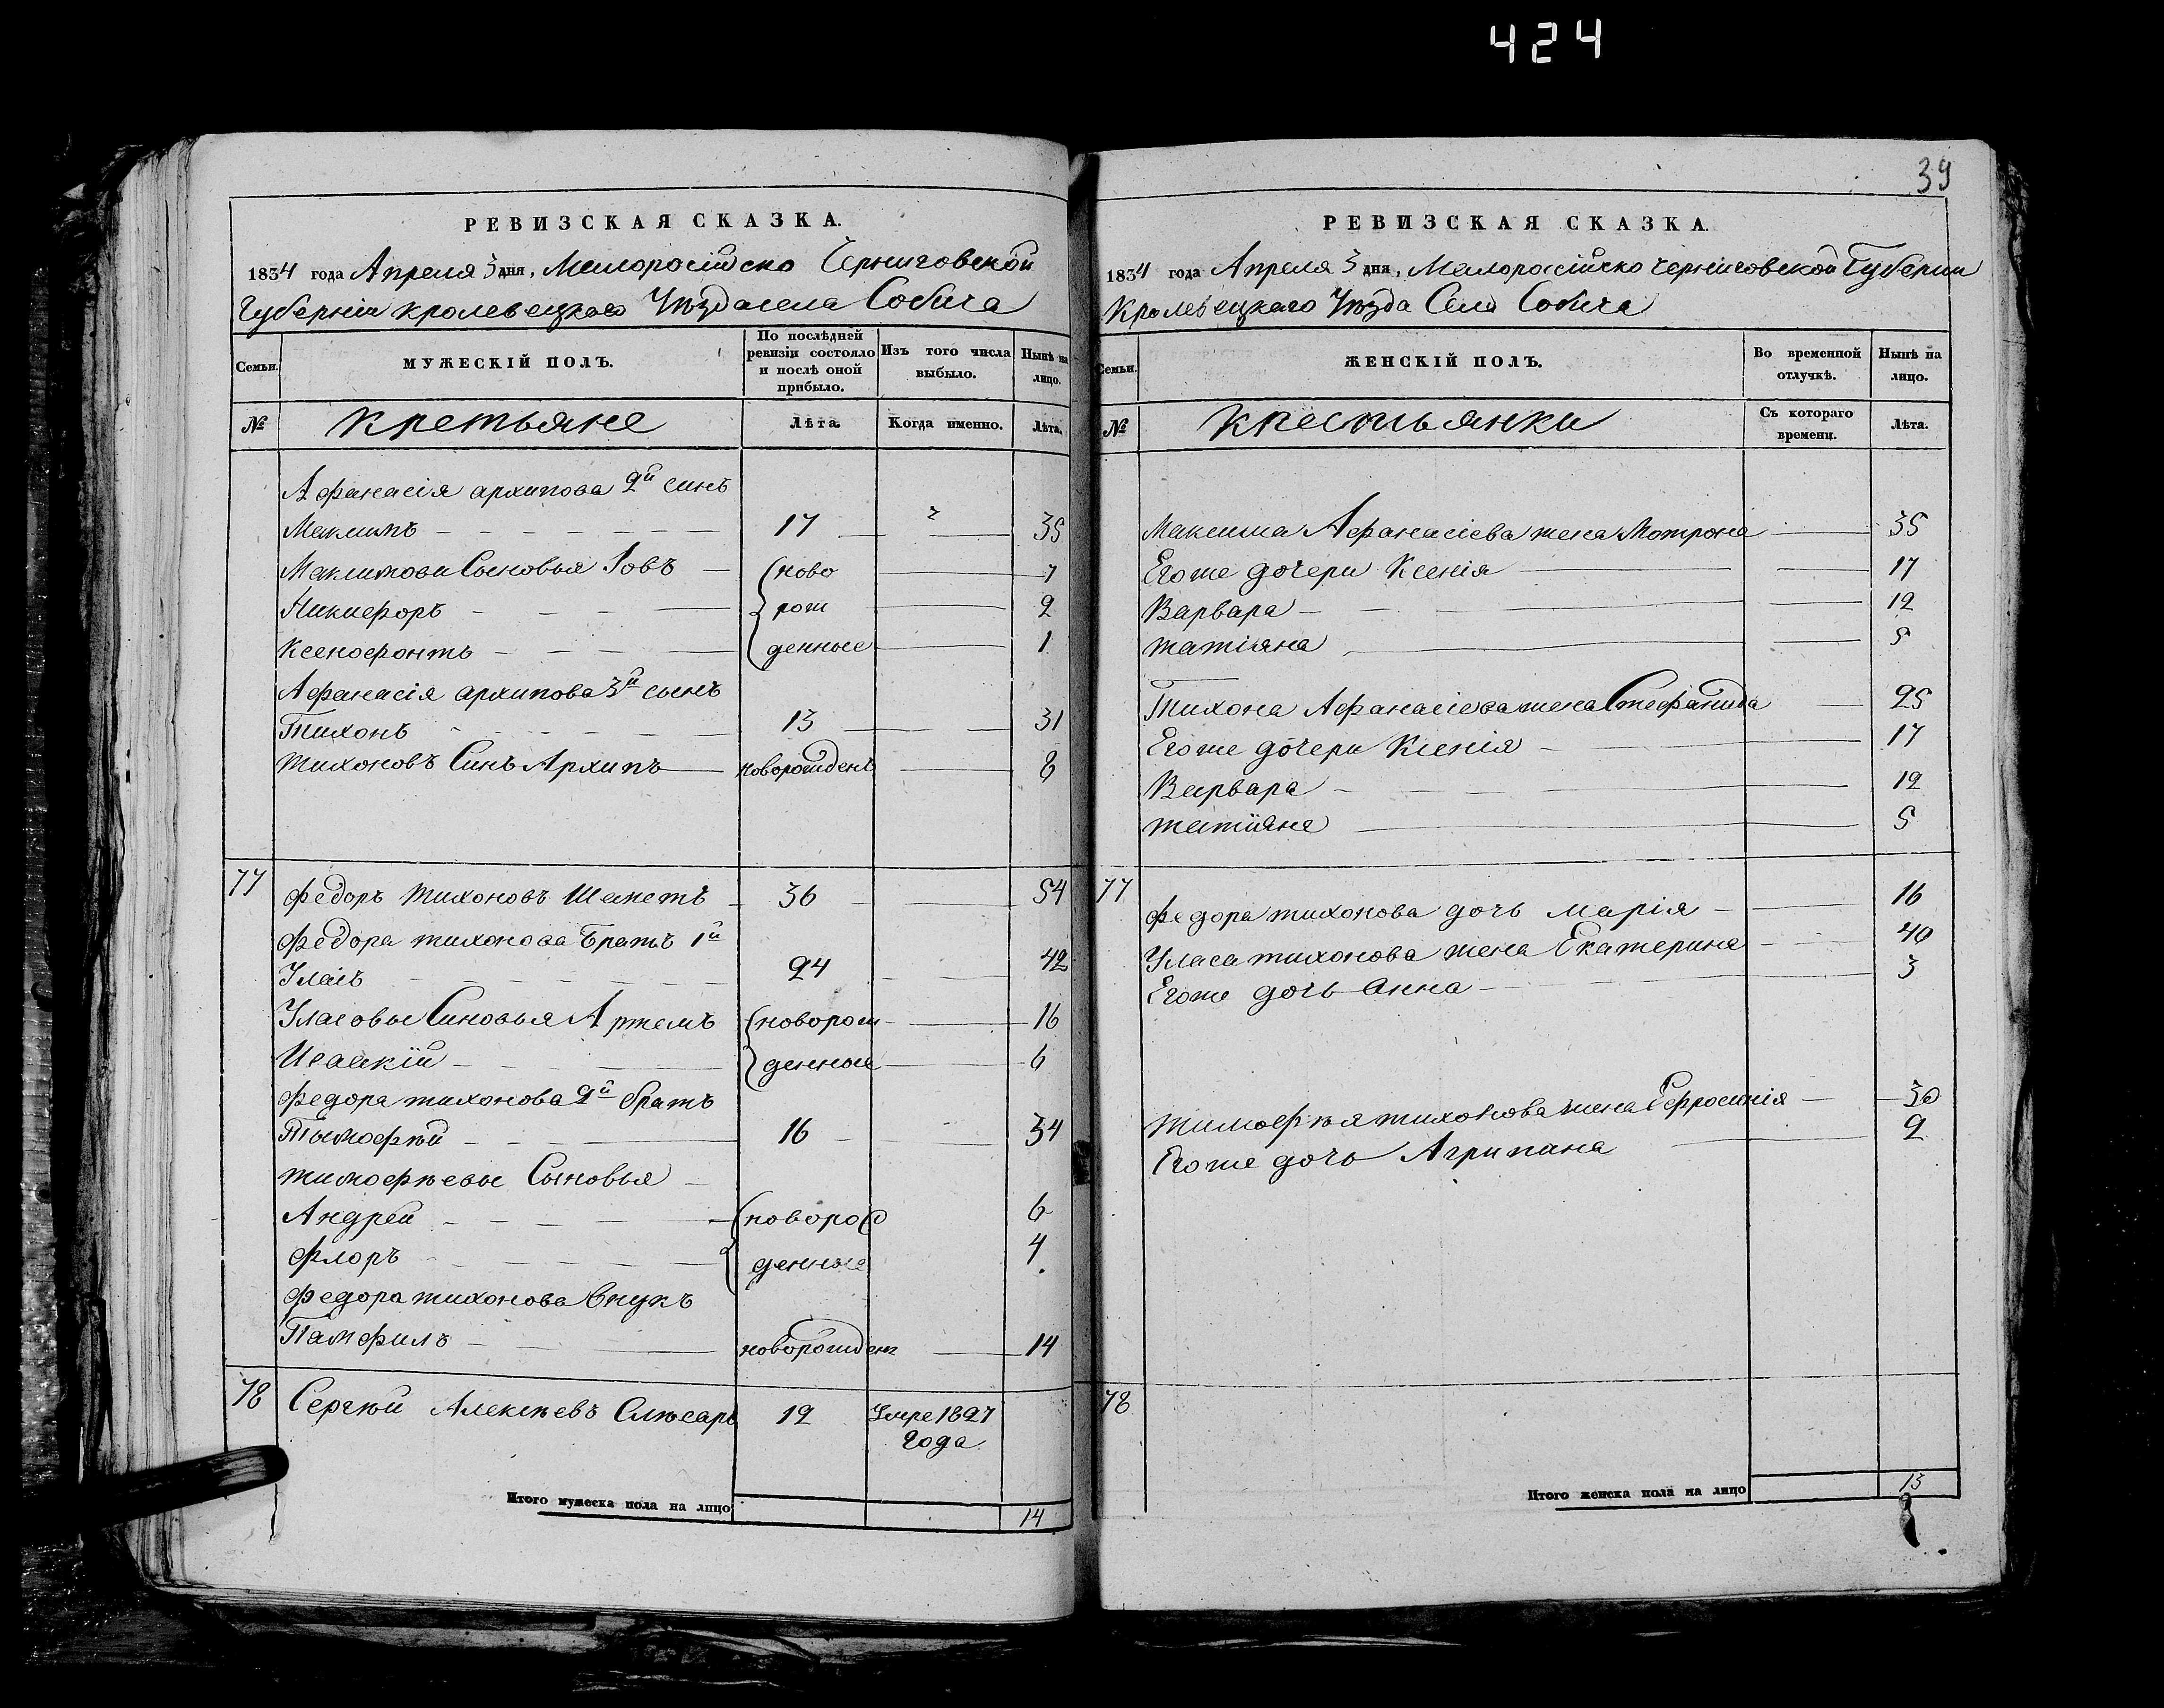 424
РЕВИЗСКАЯ СКАЗКА.
1834 года Апреля 3 дня, Малоросійско Черниговской
Губерніи Кролевецкаго Уѣзда села Собича
Семьи.
МУЖЕСКІЙ ПОЛЪ.
По послѣдней ревизіи состояло и послѣ оной прибыло.
Изъ того числа выбыло.
Нынѣ на лицо.
№ Кретьяне Лѣта. Когда именно. Лѣта.
Афанасія архипова 2й синъ
Максимъ 17 35
Максимови Сыновья Іовъ ново 7
Никифоръ рож 2
Ксенофонтъ денные 1
Афанасія архипова 3й сынъ
Тихонъ 13 31
Тихоновъ Синъ Архипъ новорожденъ 8
77 Федоръ Тихоновъ Шакетъ 36 54
Федора тихонова Братъ 1й
Уласъ 24 42
Уласовы Синовья Артемъ новорож 16
Исаакій денные 6
Федора тихонова 2й братъ
Тымофѣй 16 34
Тимофѣевы Сыновья
Андрей новорож 6
Флоръ денные 4
Федора тихонова внукъ
Памфилъ новорожден 14
78 Сергѣй Алексѣевъ Слѣсарь 12 Умре 1827
года
Итого мужеска пола на лицо 14
39
РЕВИЗСКАЯ СКАЗКА.
1834 года Апреля 3 дня, Малоросійско Черниговской Губернии
Кролевецкаго Уѣзда Села Собича
Семьи.
ЖЕНСКІЙ ПОЛЪ.
Во временной отлучкѣ.
Нынѣ на лицо.
№ Крестьянки Съ котораго времени. Лѣта.
Максима Афанасіева жена Мотрона 35
Егоже дочери Ксенія 17
Варвара 12
татіяна 5
Тихона Афанасіева жена Стефанида 25
Егоже дочери Ксенія 17
Варвара 12
татіяна 5
77 Федора тихонова дочь Марія 16
Уласа тихонова жена Екатерина 40
Егоже дочь Анна 3
Тимофѣя тихонова жена Ефросинія 30
Егоже дочь Агрипина 2
78
Итого женска пола на лицо 13